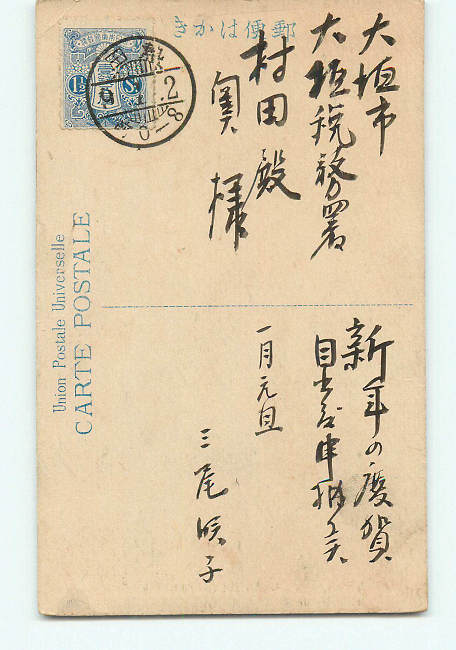 きかはは便郵
大垣市
大垣税務署
村田殿
奥様
新年の慶賀
目出度申納候
一月元旦
三尾咲子
Union Postale Universelle
CARTE POSTALE